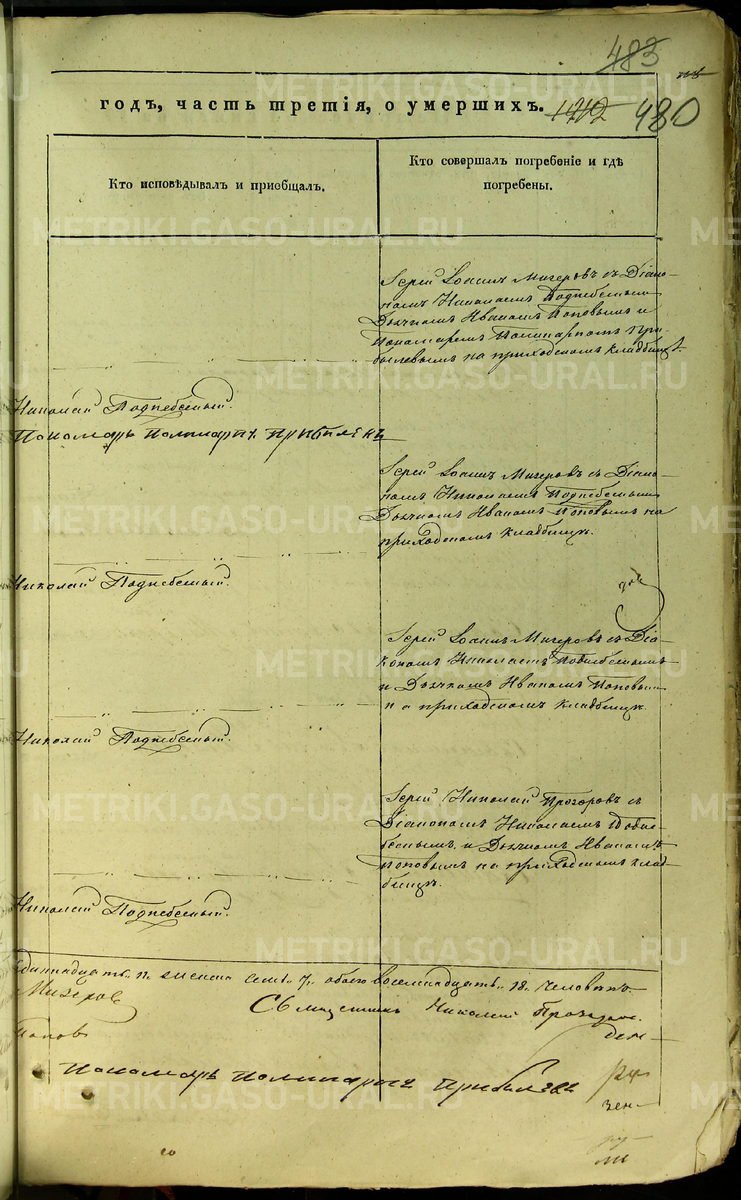 483
годъ, часть третія, о умершихъ. 1212 480
Кто исповѣдывалъ и пріобщалъ.
Кто совершалъ погребеніе и гдѣ
погребены.
METRIKI.GASO-URAL.RU
Іерей Іоаннъ Мизеровъ съ Діако-
номъ Николаемъ Поднебеснымъ
Дьячкомъ Иваномъ Поповымъ и
Пономаремъ Поликарпомъ При-
былевымъ на приходскомъ кладбищѣ.
Николай Поднебесный.
Пономарь Поликарпъ Прибылевъ
Іерей Іоаннъ Мизеровъ съ Діако-
номъ Николаемъ Поднебеснымъ
Дьячкомъ Иваномъ Поповымъ на
приходскомъ кладбищѣ.
Николай Поднебесный.
Іерей Іоаннъ Мизеровъ съ Діа-
кономъ Николаемъ Поднебеснымъ
и Дьячкомъ Иваномъ Поповымъ
на приходскомъ кладбищѣ.
Николай Поднебесный.
Іерей Николай Прозоровъ съ
Діакономъ Николаемъ Подне-
беснымъ и Дьячкомъ Иваномъ
Поповымъ на приходскомъ клад-
бищѣ.
Николай Поднебесный.
одиннадцать 11. женска семь 7, обоего восемнадцать 18. человѣкъ.
Мизеровъ
Николай
Поповъ
Пономарь Поликарпъ Прибылевъ